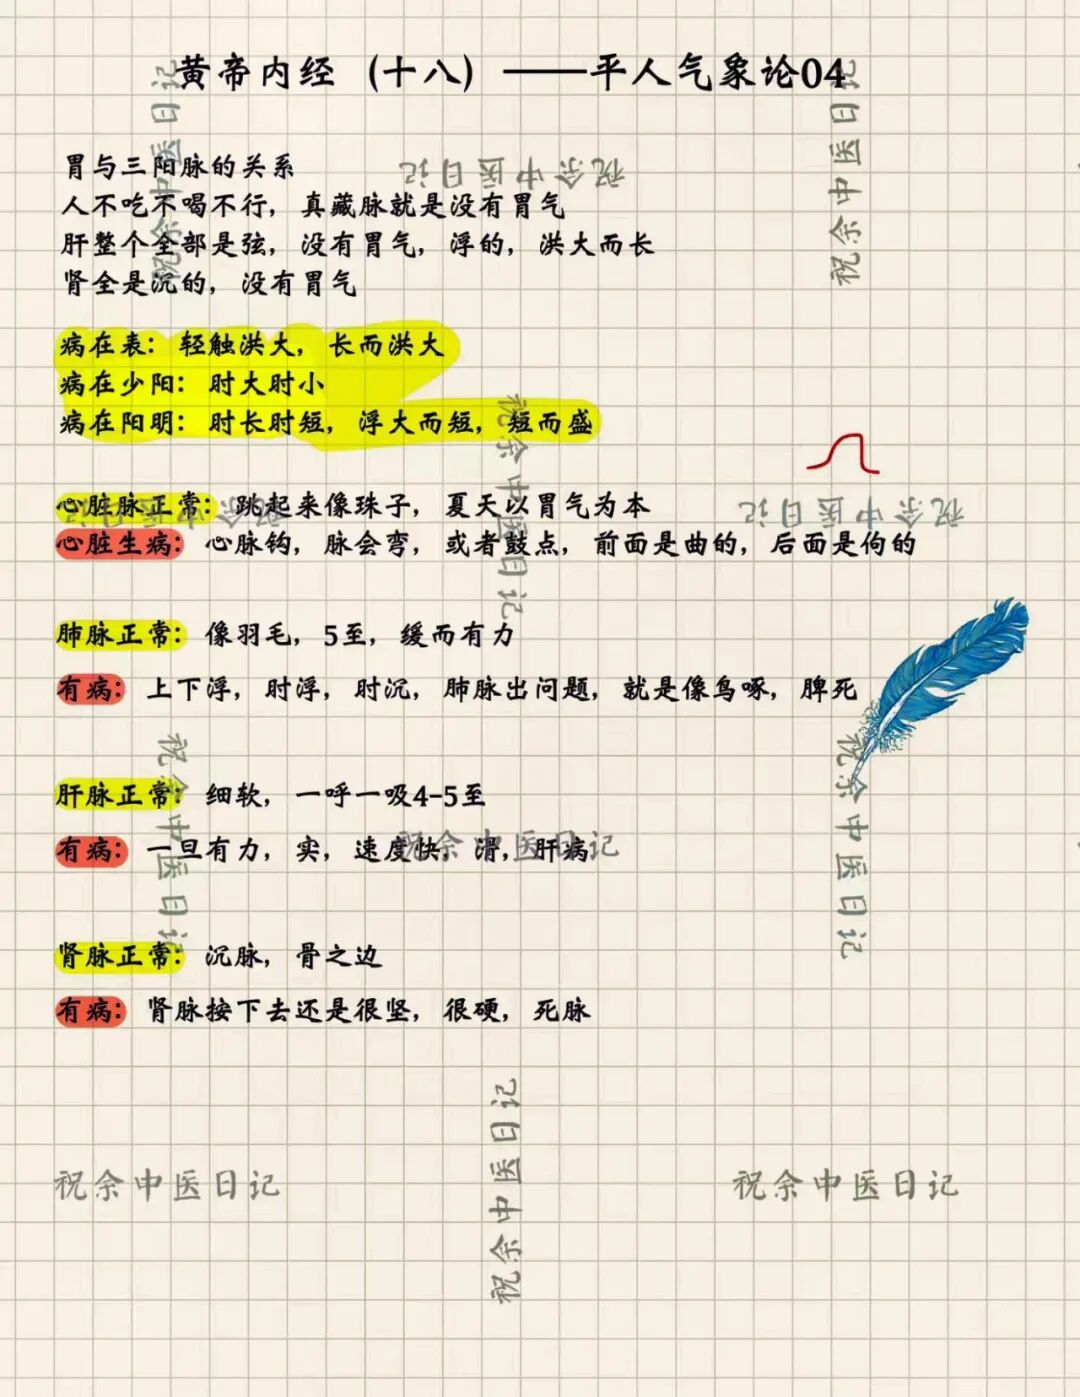 黄帝内经（十八）——平人气象论04
胃与三阳脉的关系
人不吃不喝不行，真藏脉就是没有胃气
肝整个全部是弦，没有胃气，浮的，洪大而长
肾全是沉的，没有胃气
病在表：轻触洪大，长而洪大
病在少阳：时大时小
病在阳明：时长时短，浮大而短，短而盛
心脏脉正常：跳起来像珠子，夏天以胃气为本
心脏生病：心脉钩，脉会弯，或者鼓点，前面是曲的，后面是佝的
肺脉正常：像羽毛，5至，缓而有力
有病：上下浮，时浮，时沉，肺脉出问题，就是像鸟啄，脾死
肝脉正常：细软，一呼一吸4-5至
有病：一旦有力，实，速度快，滑，肝病
肾脉正常：沉脉，骨之边
有病：肾脉按下去还是很坚，很硬，死脉
祝余中医日记
祝余中医日记
祝余中医日记
祝余中医日记
祝余中医日记
祝余中医日记
祝余中医日记
祝余中医日记
祝余中医日记
祝余中医日记
祝余中医日记
祝余中医日记